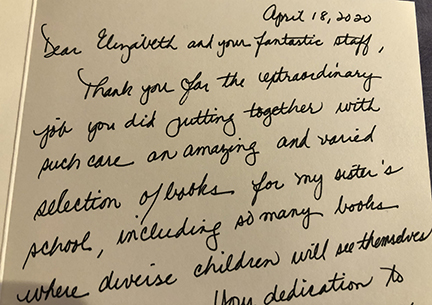 April 18, 2020
Dear Elizabeth and your fantastic staff,
Thank you for the extraordinary
job you did putting together with
such care an amazing and varied
selection of books for my sister's
school, including so many books
where diverse children will see themselves
Your dedication to